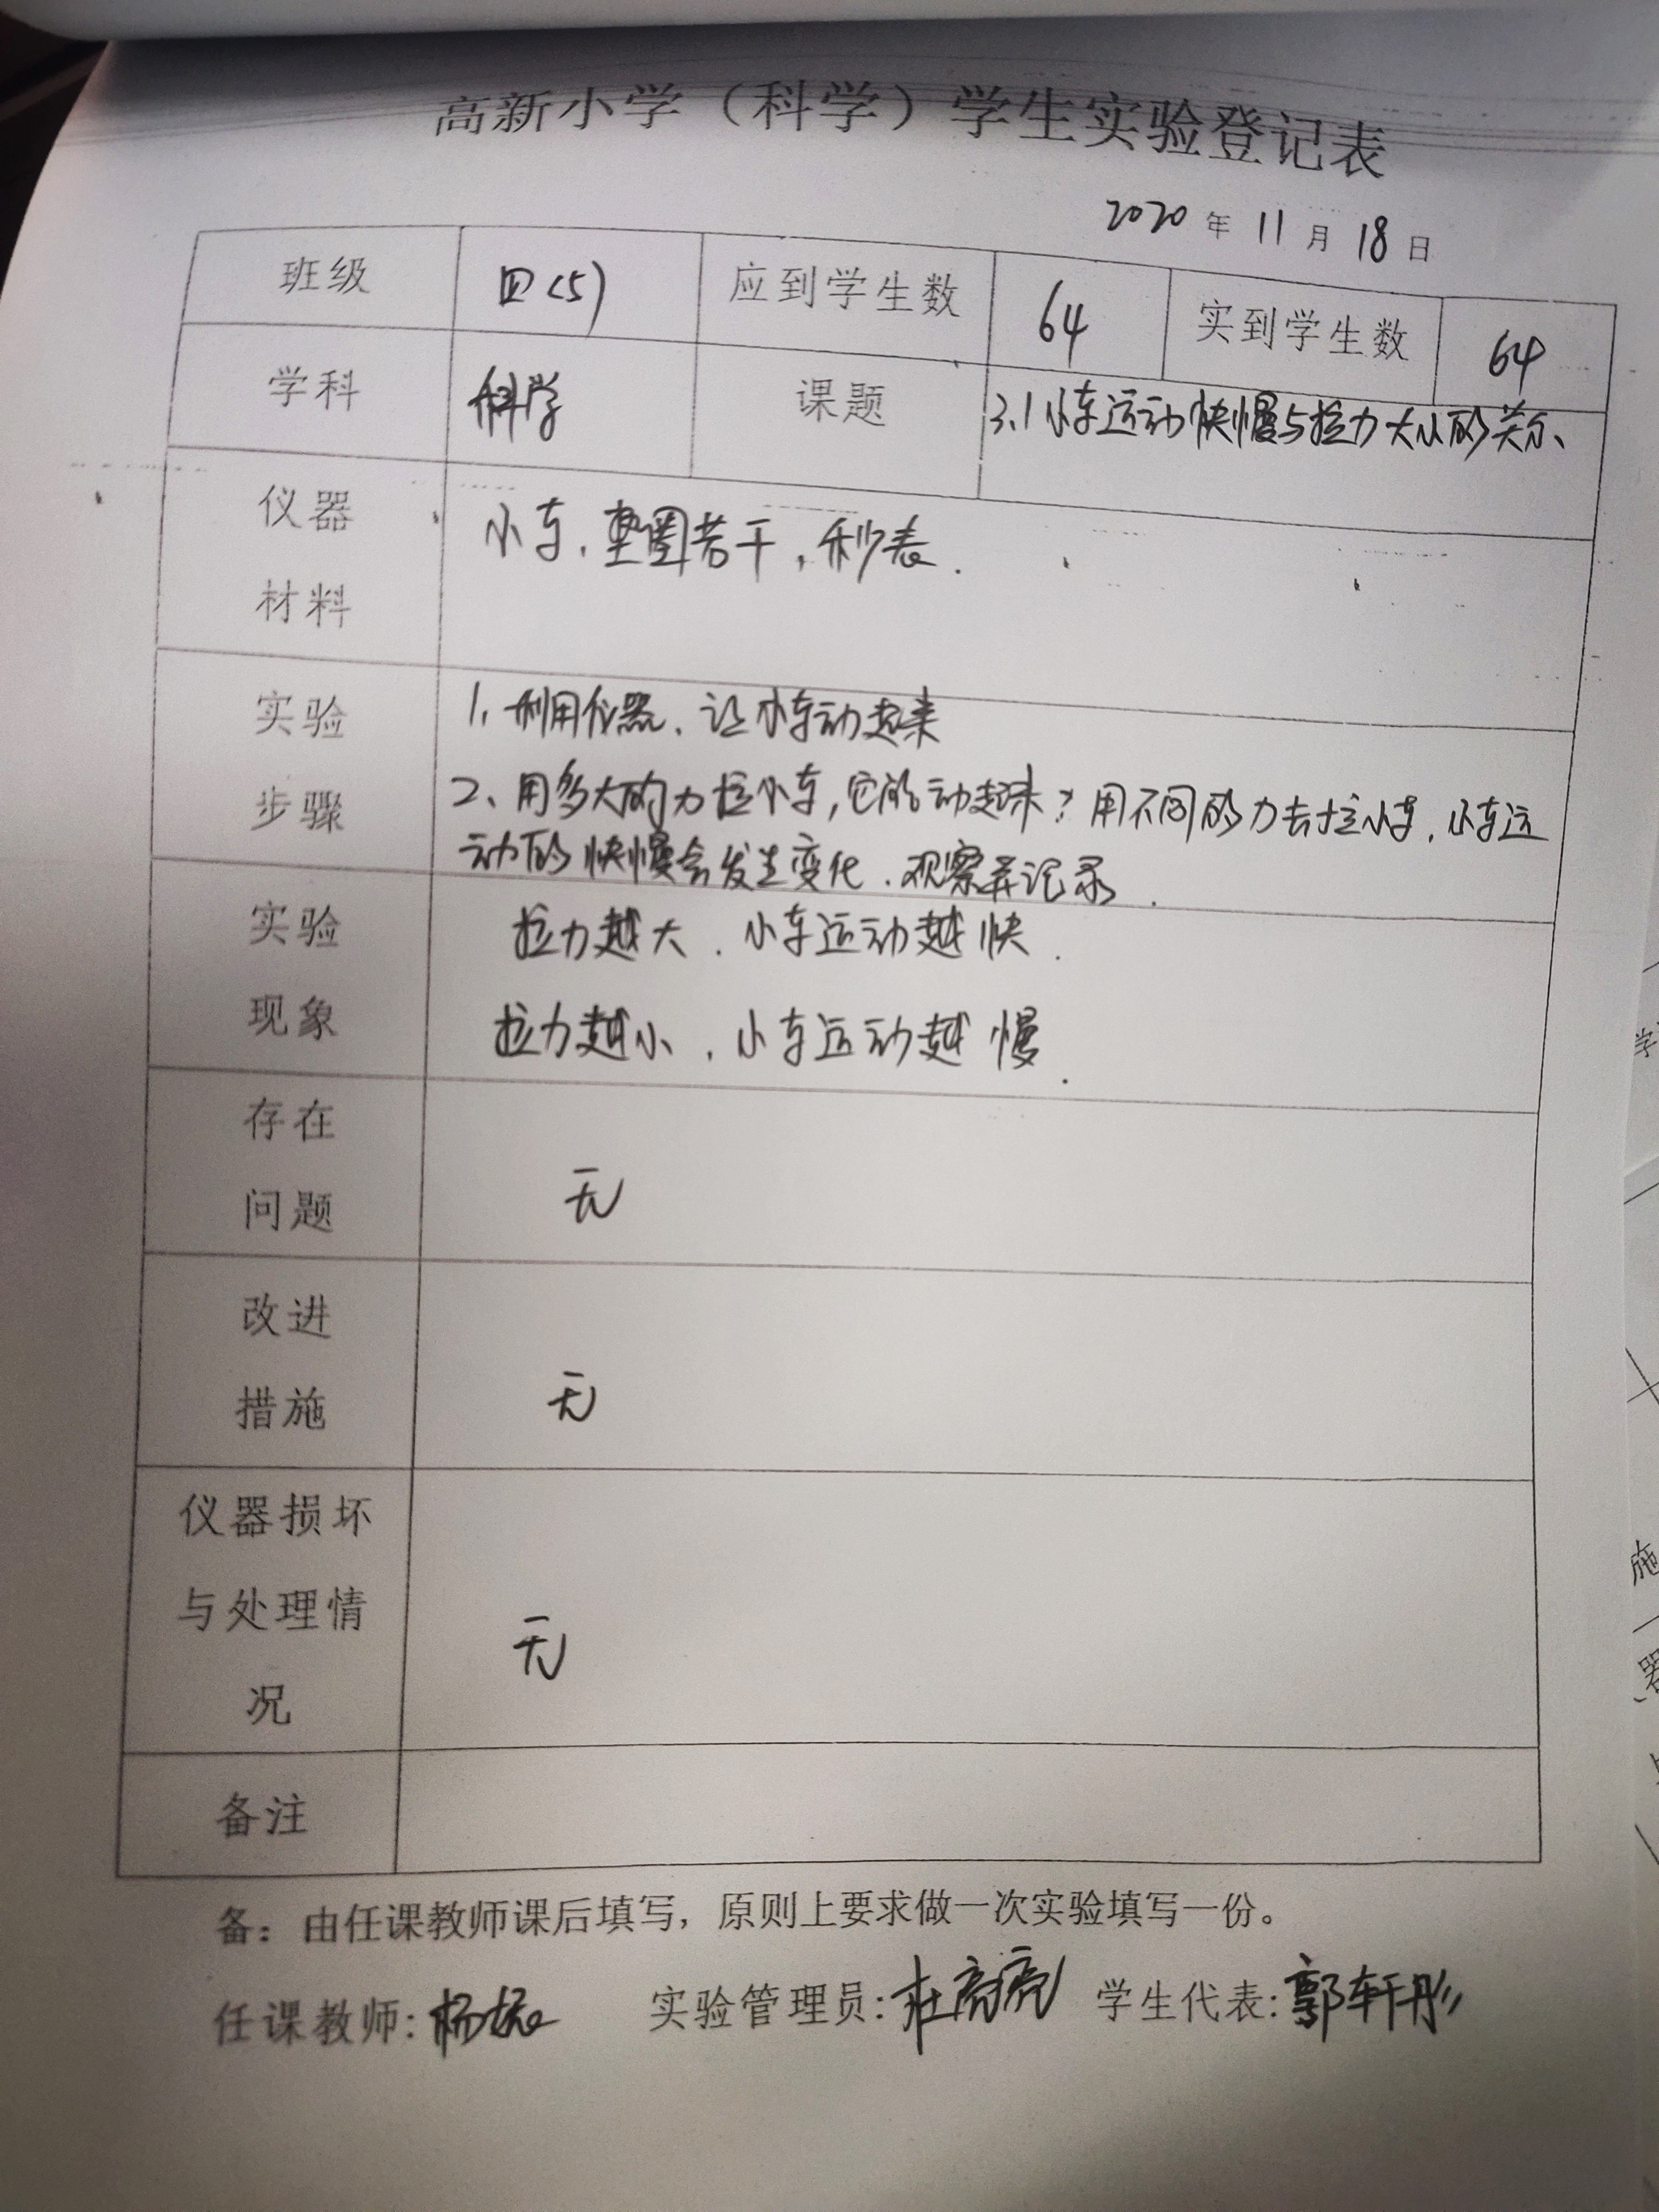 高新小学（科学）学生实验登记表
2020 年 11 月 18 日
班级 四(5) 应到学生数 64 实到学生数 64
学科 科学 课题 3.1小车运动快慢与拉力大小的关系
仪器
材料
小车，垫圈若干，秒表.
实验
步骤
1、利用仪器、让小车动起来
2、用多大的力拉小车，它能动起来？用不同的力去拉小车，小车运
动的快慢会发生变化、观察并记录.
实验
现象
拉力越大．小车运动越快.
拉力越小，小车运动越慢.
存在
问题
无
改进
措施
无
仪器损坏
与处理情
况
无
备注
备：由任课教师课后填写，原则上要求做一次实验填写一份。
任课教师:杨振 实验管理员:杜亮亮 学生代表:郭轩彤
学
施
器